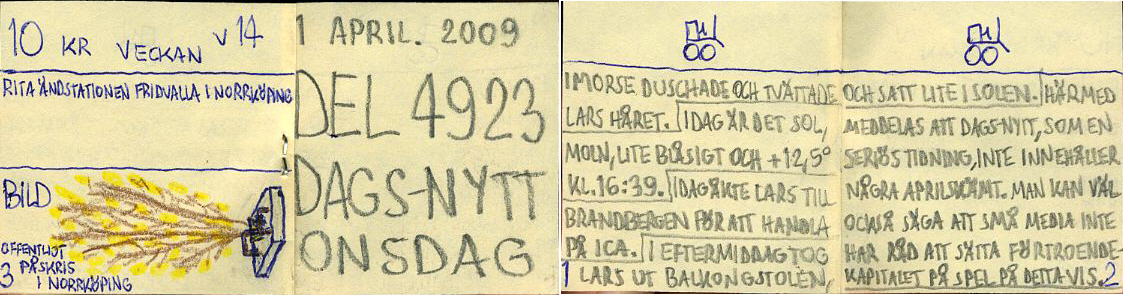 10 KR VECKAN V 14
RITA ÄNDSTATIONEN FRIDVALLA I NORRKÖPING
BILD
OFFENTLIGT
PÅSKRIS
I NORRKÖPING
3
1 APRIL. 2009
DEL 4923
DAGS-NYTT
ONSDAG
I MORSE DUSCHADE OCH TVÄTTADE
LARS HÅRET. IDAG ÄR DET SOL,
MOLN, LITE BLÅSIGT OCH +12,5°
KL. 16:39. IDAG ÅKTE LARS TILL
BRANDBERGEN FÖR ATT HANDLA
PÅ ICA. I EFTERMIDDAG TOG
LARS UT BALKONGSTOLEN,
1
OCH SATT LITE I SOLEN. HÄRMED
MEDDELAS ATT DAGS-NYTT, SOM EN
SERIÖS TIDNING, INTE INNEHÅLLER
NÅGRA APRILSKÄMT. MAN KAN VÄL
OCKSÅ SÄGA ATT SMÅ MEDIA INTE
HAR RÅD ATT SÄTTA FÖRTROENDE-
KAPITALET PÅ SPEL PÅ DETTA VIS.
2